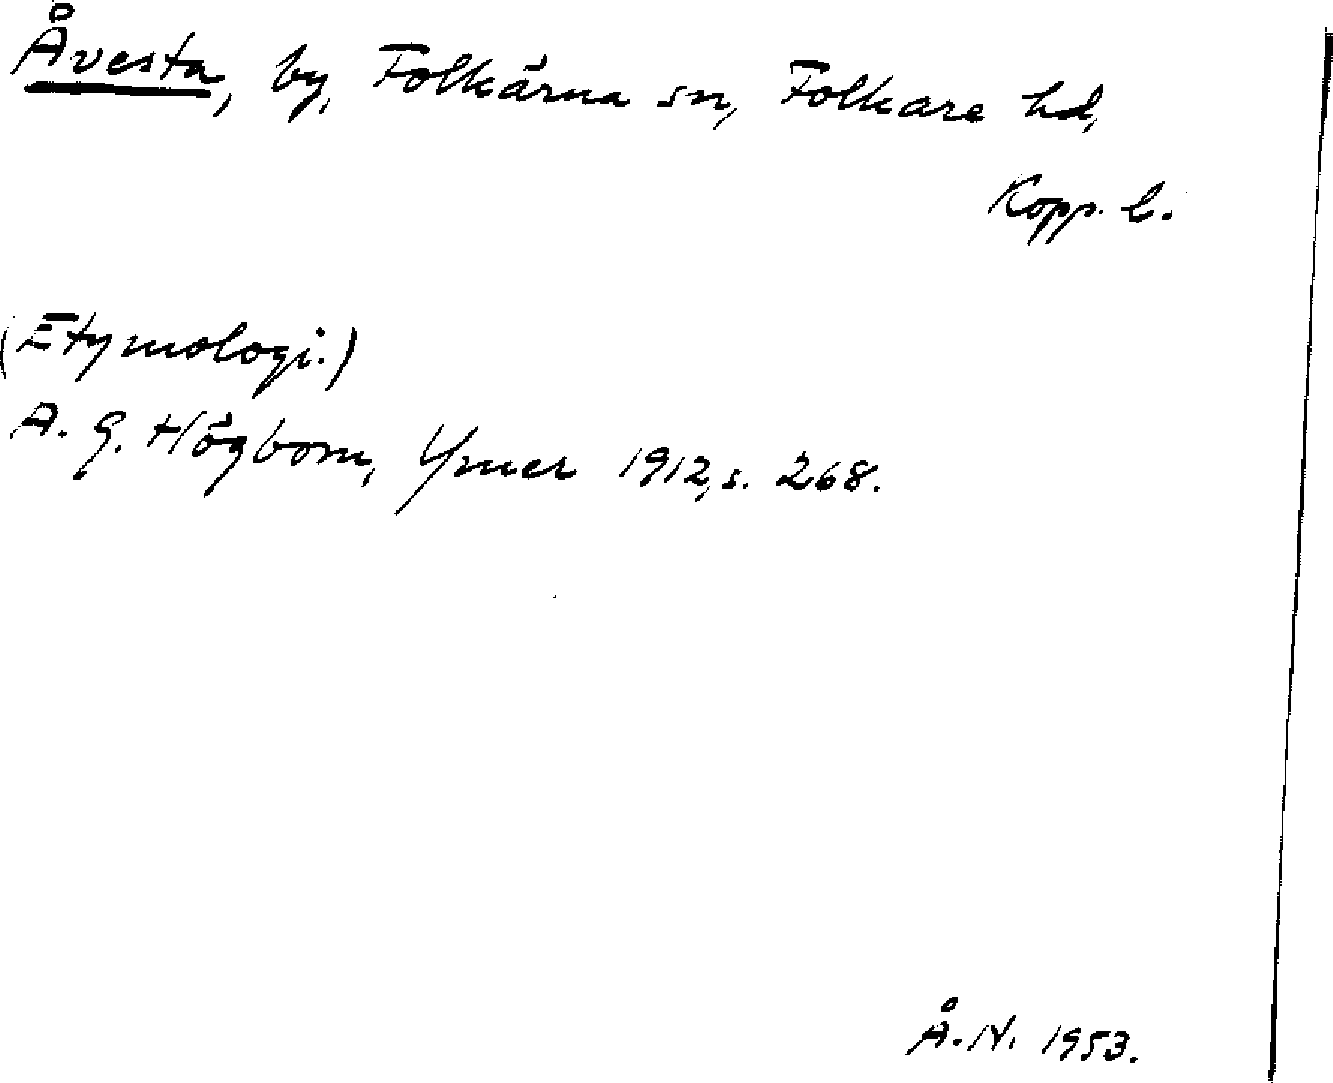 Åvesta, by, Folkärna sn, Folkare hd,
Kopp. l.
(Etymologi.)
A. G. Högbom, Ymer 1912, s. 268.
Å. N. 1953.